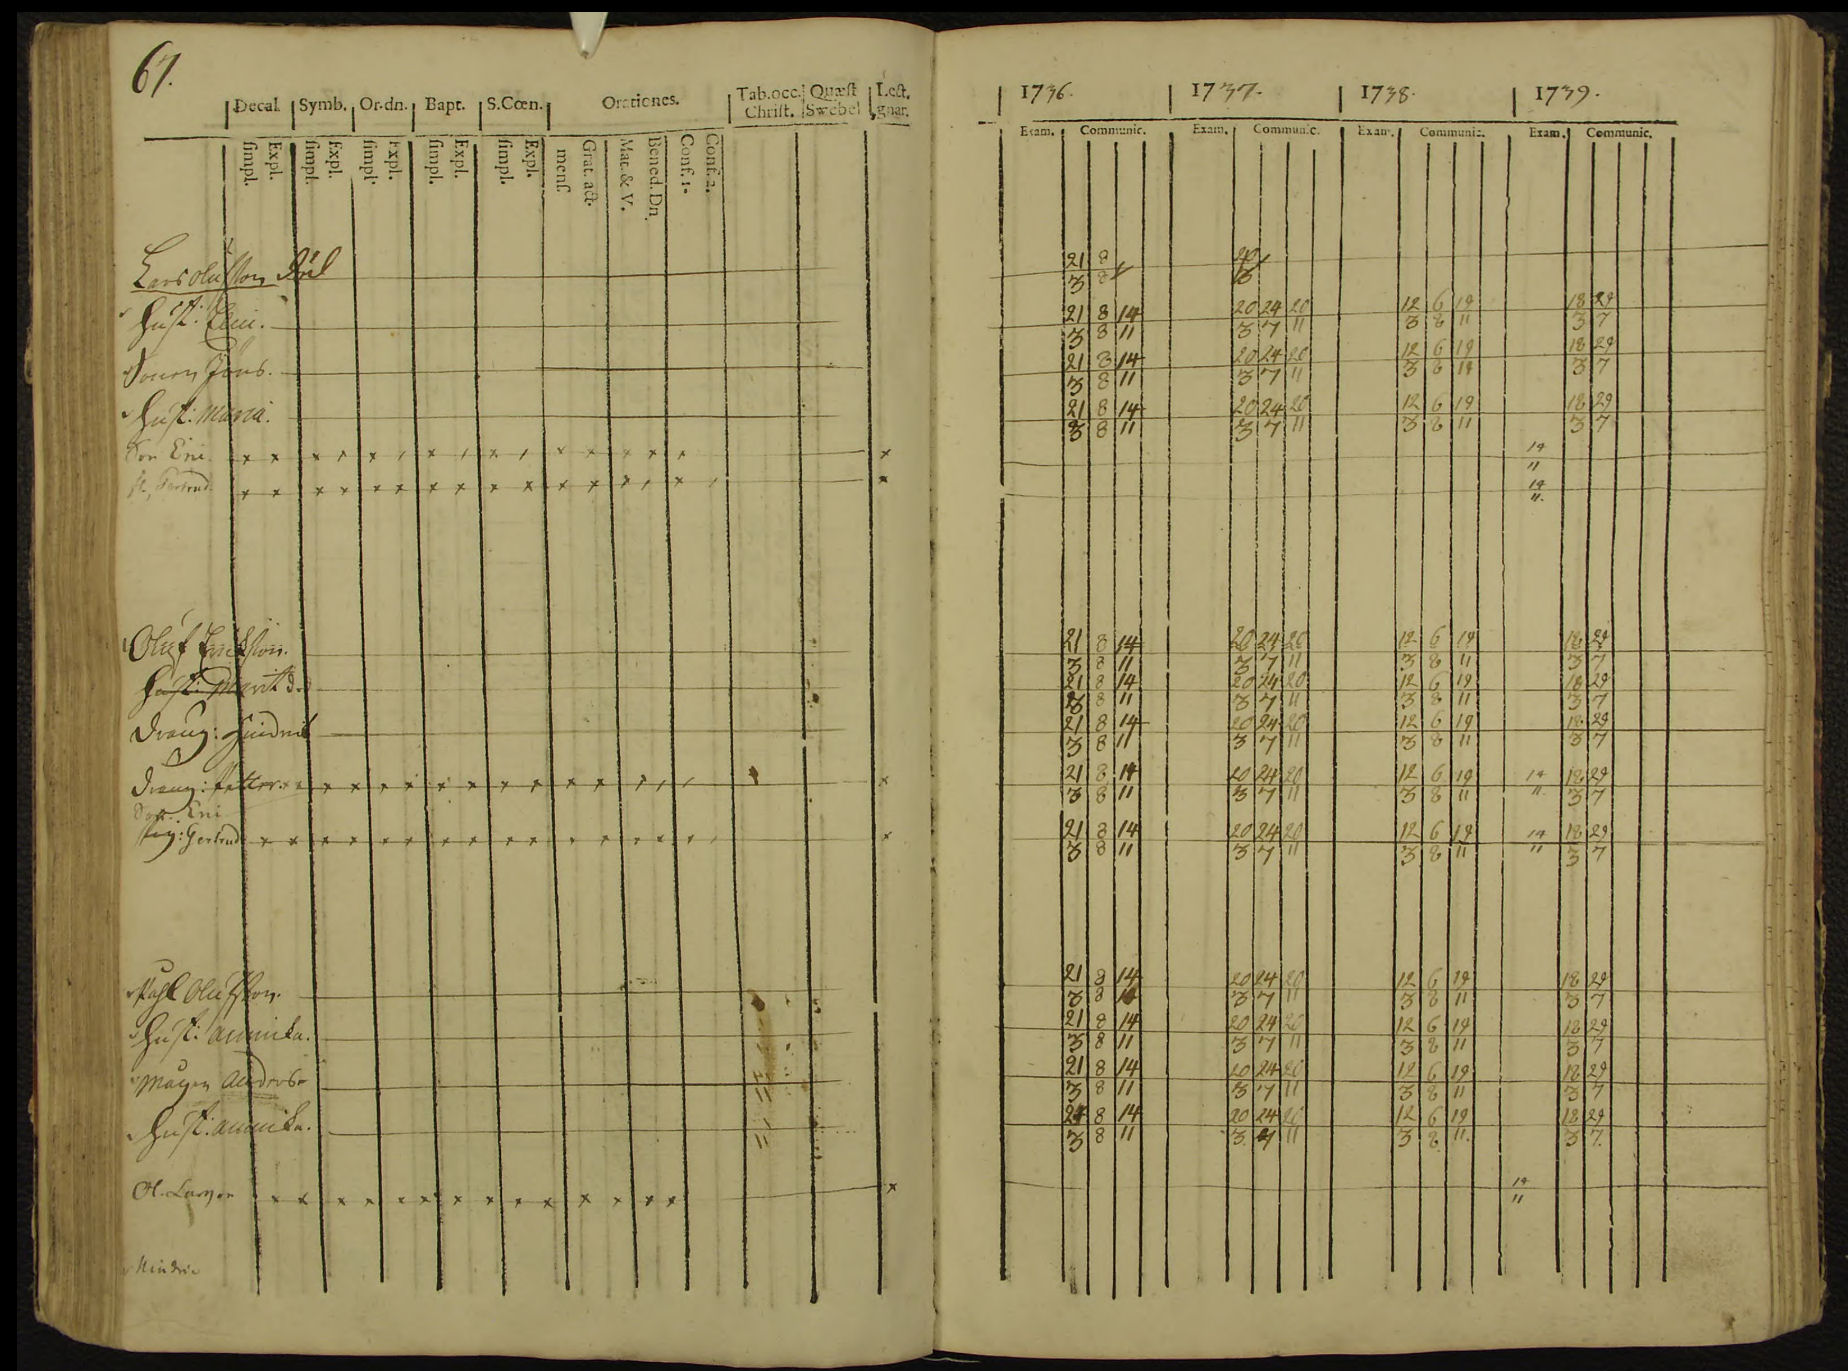 67.
Decal. Symb. Or.dn. Bapt. S.Cœn. Orationes. Tab.occ. Christ. Quæst Swebel Lect. gnar.
simpl. Expl. simpl. Expl. simpl. Expl. simpl. Expl. simpl. Expl. mens. Grat. act. Mat. & V. Bened. Dn. Conf. 1. Conf. 2.
1736. 1737. 1738. 1739.
Exam. Communic. Exam. Communic. Exam. Communic. Exam. Communic.
Lars Olufsson 21 8
3 8
Hust: Elin. 21 8 14 20 24 20 12 6 19 18 29
3 8 11 3 7 11 3 8 11 3 7
Sonen Jöns. 21 8 14 20 24 20 12 6 19 18 29
3 8 11 3 7 11 3 8 11 3 7
Hust: Maria. 21 8 14 20 24 20 12 6 19 18 29
3 8 11 3 7 11 3 8 11 3 7
Son Eric. x x x x x x x x x x x x x x x x x 19
11
Gertrud. x x x x x x x x x x x x x x x x x 19
11.
Oluf Erickson. 21 8 14 20 24 20 12 6 19 18 29
3 8 11 3 7 11 3 8 11 3 7
Hust: Marit 21 8 14 20 24 20 12 6 19 18 29
3 8 11 3 7 11 3 8 11 3 7
Dräng: Hindrik 21 8 14 20 24 20 12 6 19 18 29
3 8 11 3 7 11 3 8 11 3 7
Dräng: Petter. x x x x x x x x x x x x x x x x x 21 8 14 20 24 20 12 6 19 19 18 29
3 8 11 3 7 11 3 8 11 11 3 7
Son. Eric
Pig: Gertrud x x x x x x x x x x x x x x x x x 21 8 14 20 24 20 12 6 19 19 18 29
3 8 11 3 7 11 3 8 11 11 3 7
Påhl Olufsson. 21 8 14 20 24 20 12 6 19 18 29
3 8 11 3 7 11 3 8 11 3 7
Hust: Annika. 21 8 14 20 24 20 12 6 19 18 29
3 8 11 3 7 11 3 8 11 3 7
Mågen Anders 21 8 14 20 24 20 12 6 19 18 29
3 8 11 3 7 11 3 8 11 3 7
Hust: Annika. 21 8 14 20 24 20 12 6 19 18 29
3 8 11 3 7 11 3 8 11. 3 7.
Ol. Larsson x x x x x x x x x x x x x x x 19
11
Hindric